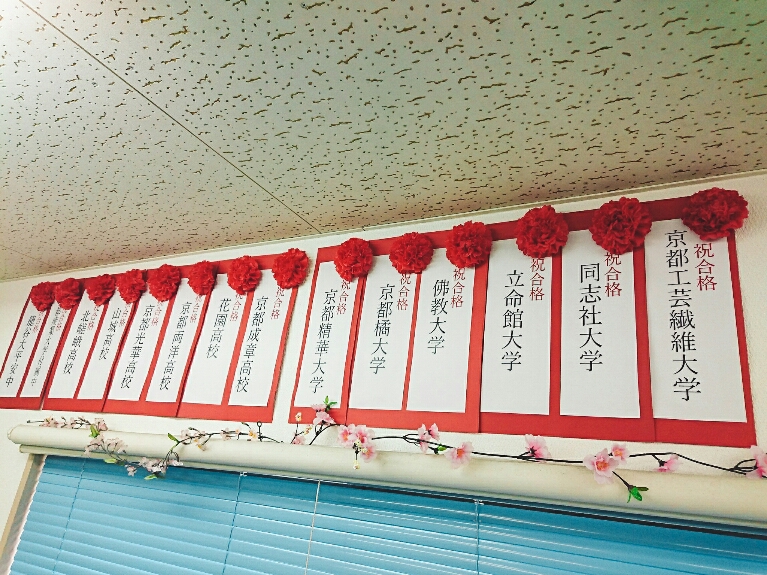 祝合格
京都工芸繊維大学
祝合格
同志社大学
祝合格
立命館大学
祝合格
佛教大学
祝合格
京都橘大学
祝合格
京都精華大学
祝合格
京都成章高校
祝合格
花園高校
祝合格
京都両洋高校
祝合格
京都光華高校
祝合格
山城高校
祝合格
北嵯峨高校
龍谷大平安中